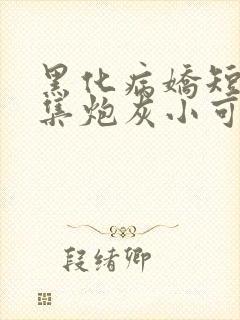 黑化病娇短
集炮灰小可
段绪卿